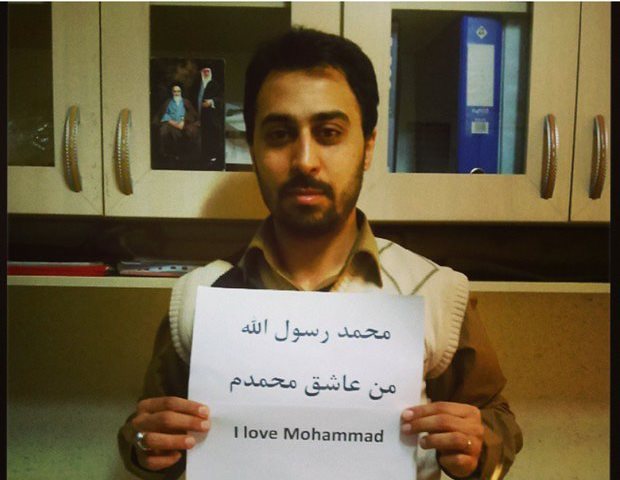 محمد رسول الله
من عاشق محمدم
I love Mohammad